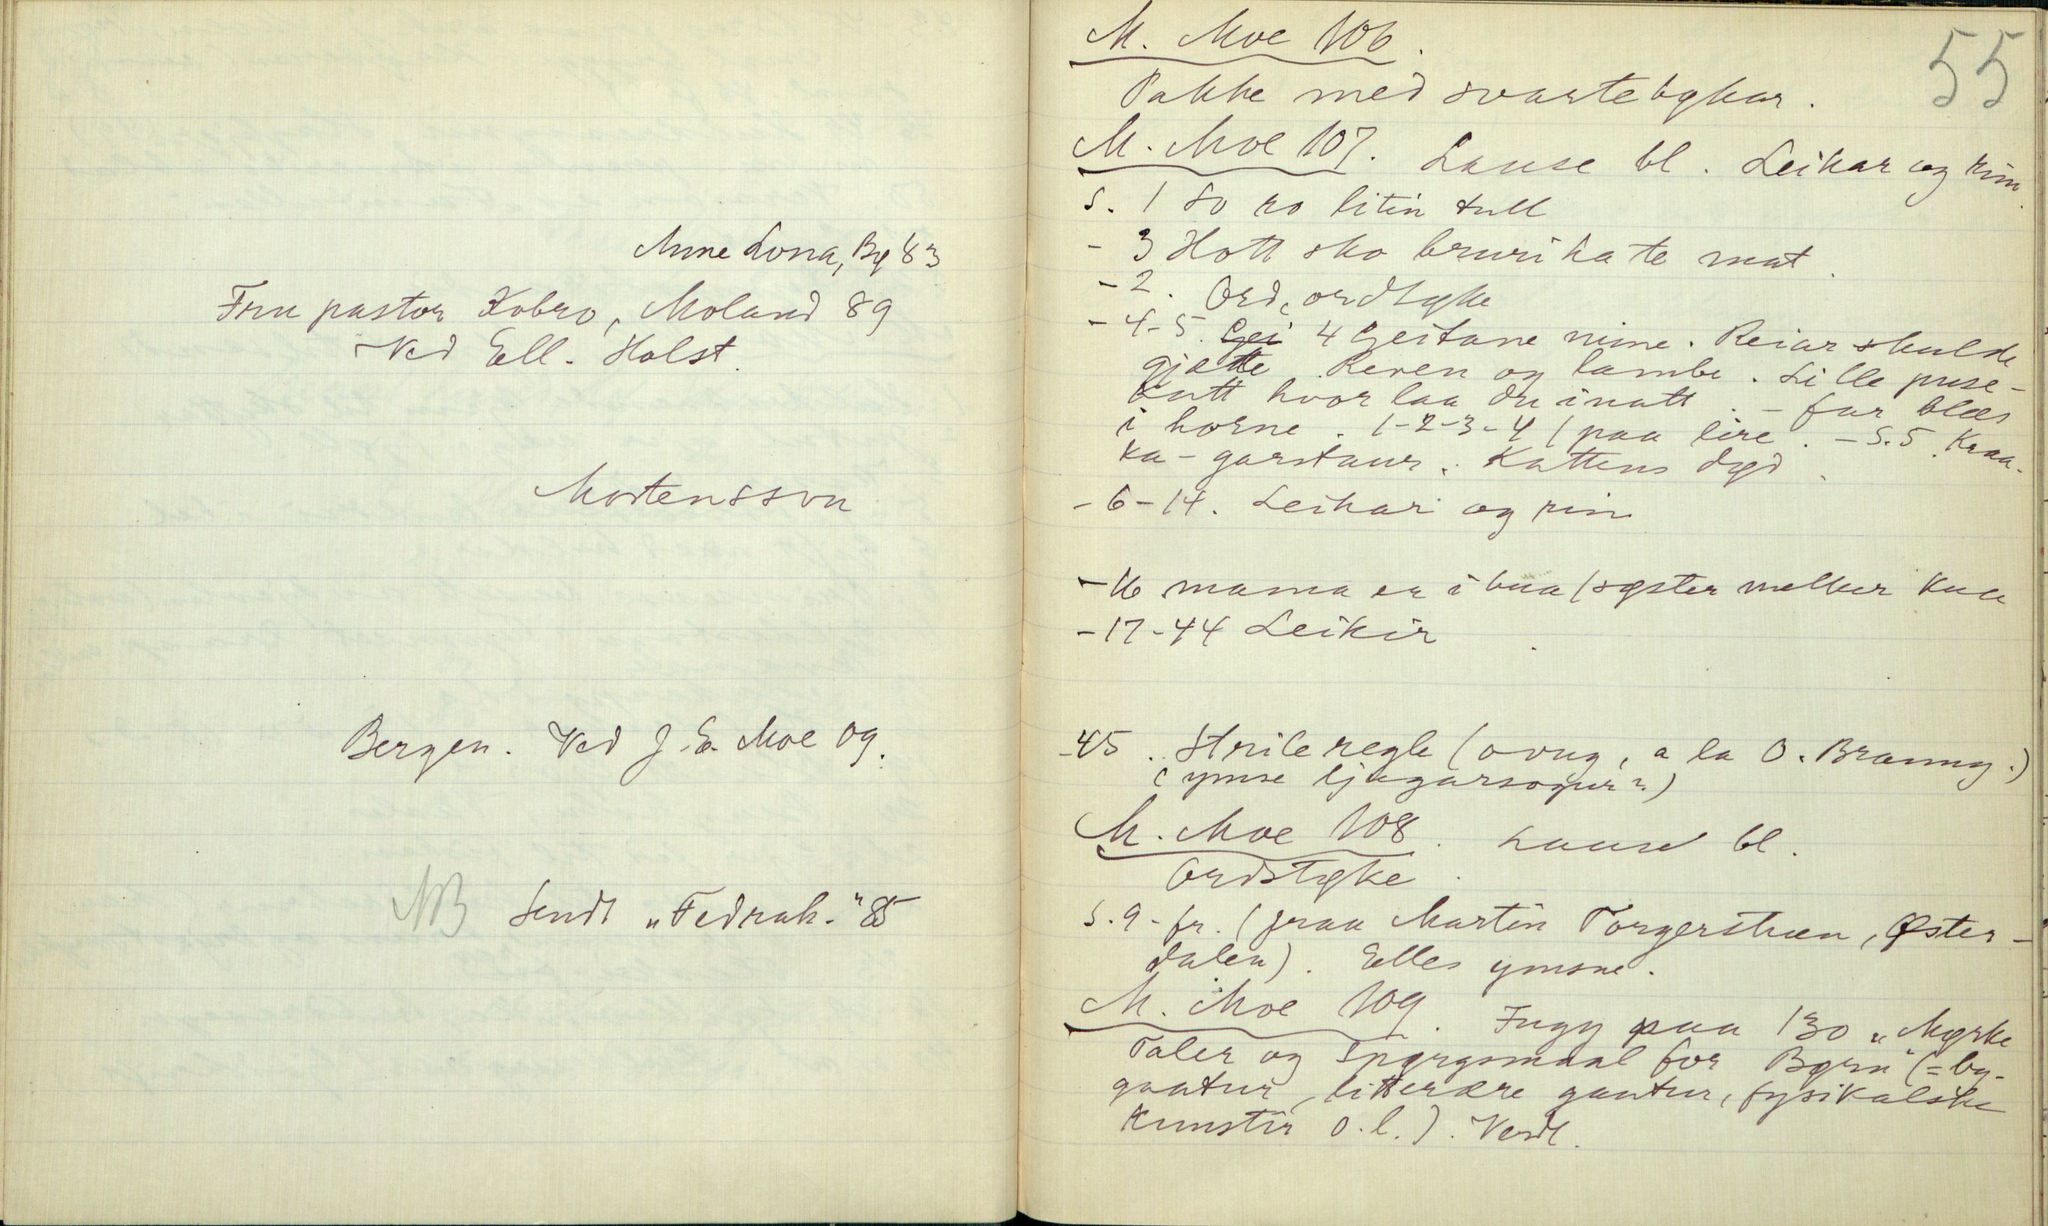 Anne Lona, Bø 83
Fru pastor Kobro, Moland 89
Ved Ell. Holst.
Mortensson
Bergen. Ved J. E. Moe 09.
NB Sendt „Fedrah." 85
55
M. Moe 106.
Pakke med svartebøkar.
M. Moe 107. Lause bl. Leikar og rim.
S. 1 So ro litin tull
- 3 Hott sko bruri ha te mat.
- 2. Ord, ordtøke
- 4-5. Gei 4 Geitane nine. Reiar skulde
gjætte. Reven og lambe. Lille puse-
katt hvor laa du i natt. - far blæs
i horne. 1-2-3-4 / paa lire. - S. 5. Kraa-
ka - garstaur. Kattens død.
- 6-14. Leikar og rim
- 16 mama er i bua / søster melker kua
- 17-44 Leikir.
- 45. Strileregle (ovug, a la O. Brænng.)
(ymse ljugarsogur?)
M. Moe 108. Lause bl.
Ordstøke.
S. 9 - fr. (fraa Martin Torgerstuen, Øster-
dalen). Elles ymsne.
M. Moe 109. Ingg paa 130 „Mørke
Taler og Spørgsmaal for Børn" (= by-
gaatur, litterære gaatur, fysikalske
Kunstir o.l.). Verdl.